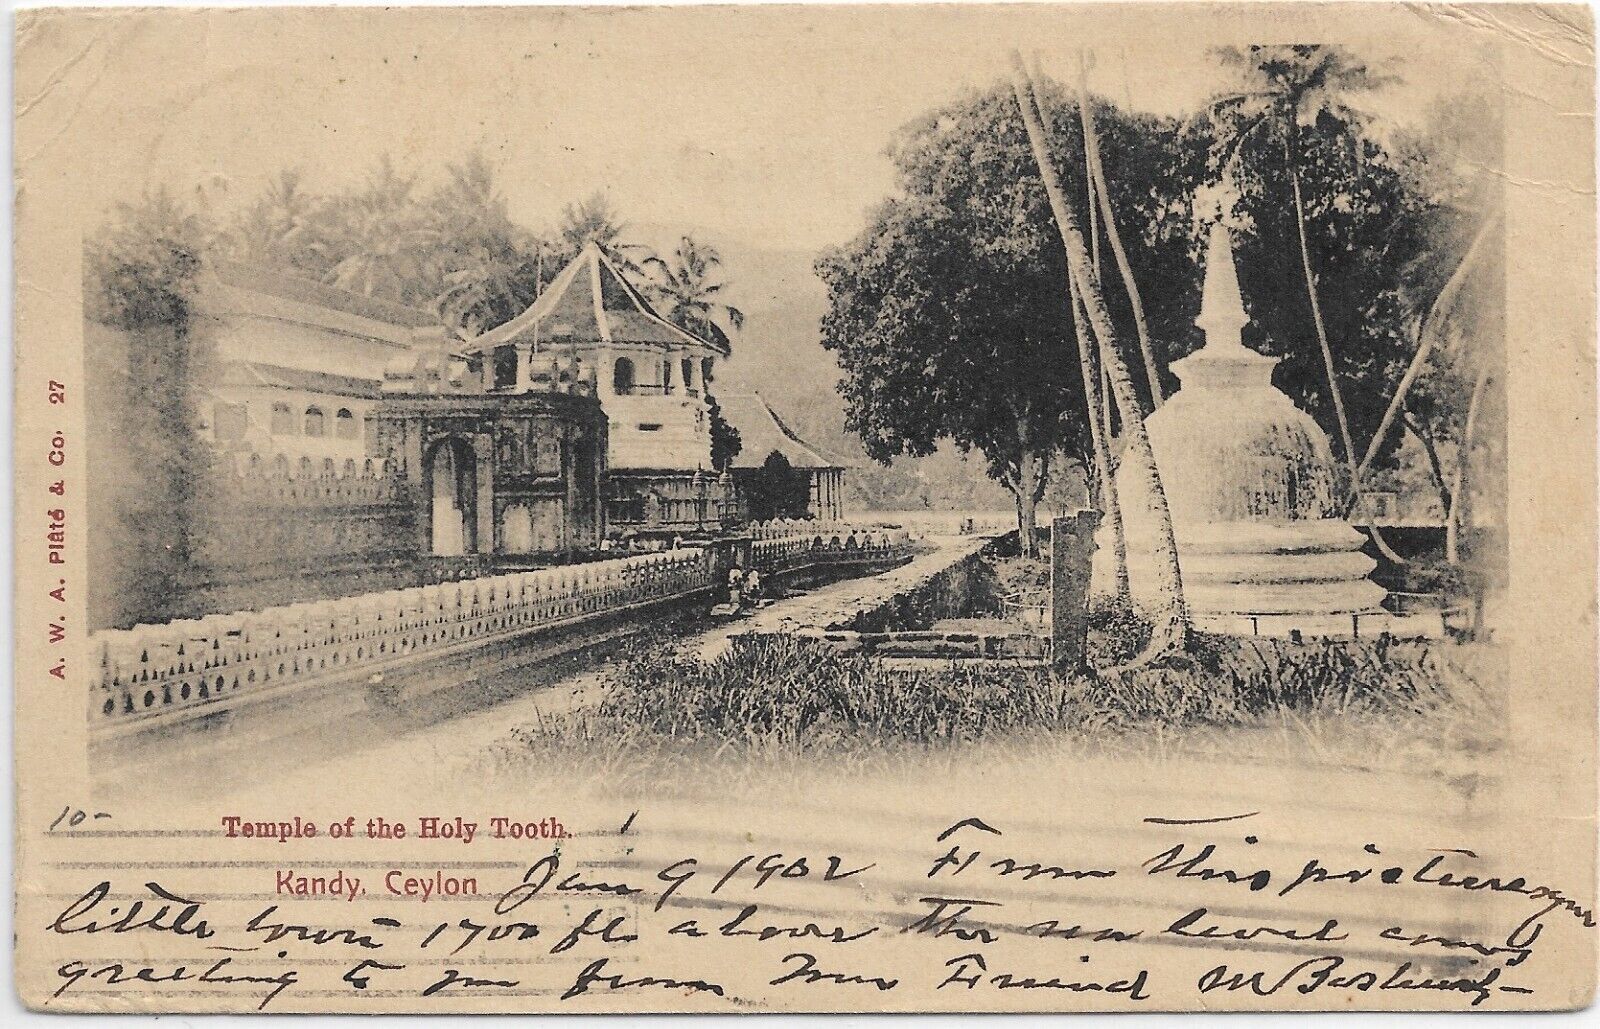 A. W. A. Plâté & Co. 27
10-
Temple of the Holy Tooth.
Kandy, Ceylon
Jan 9 1902 From this picturesque
little town 1700 ft. above the sea level comes
greeting to you from Your Friend M